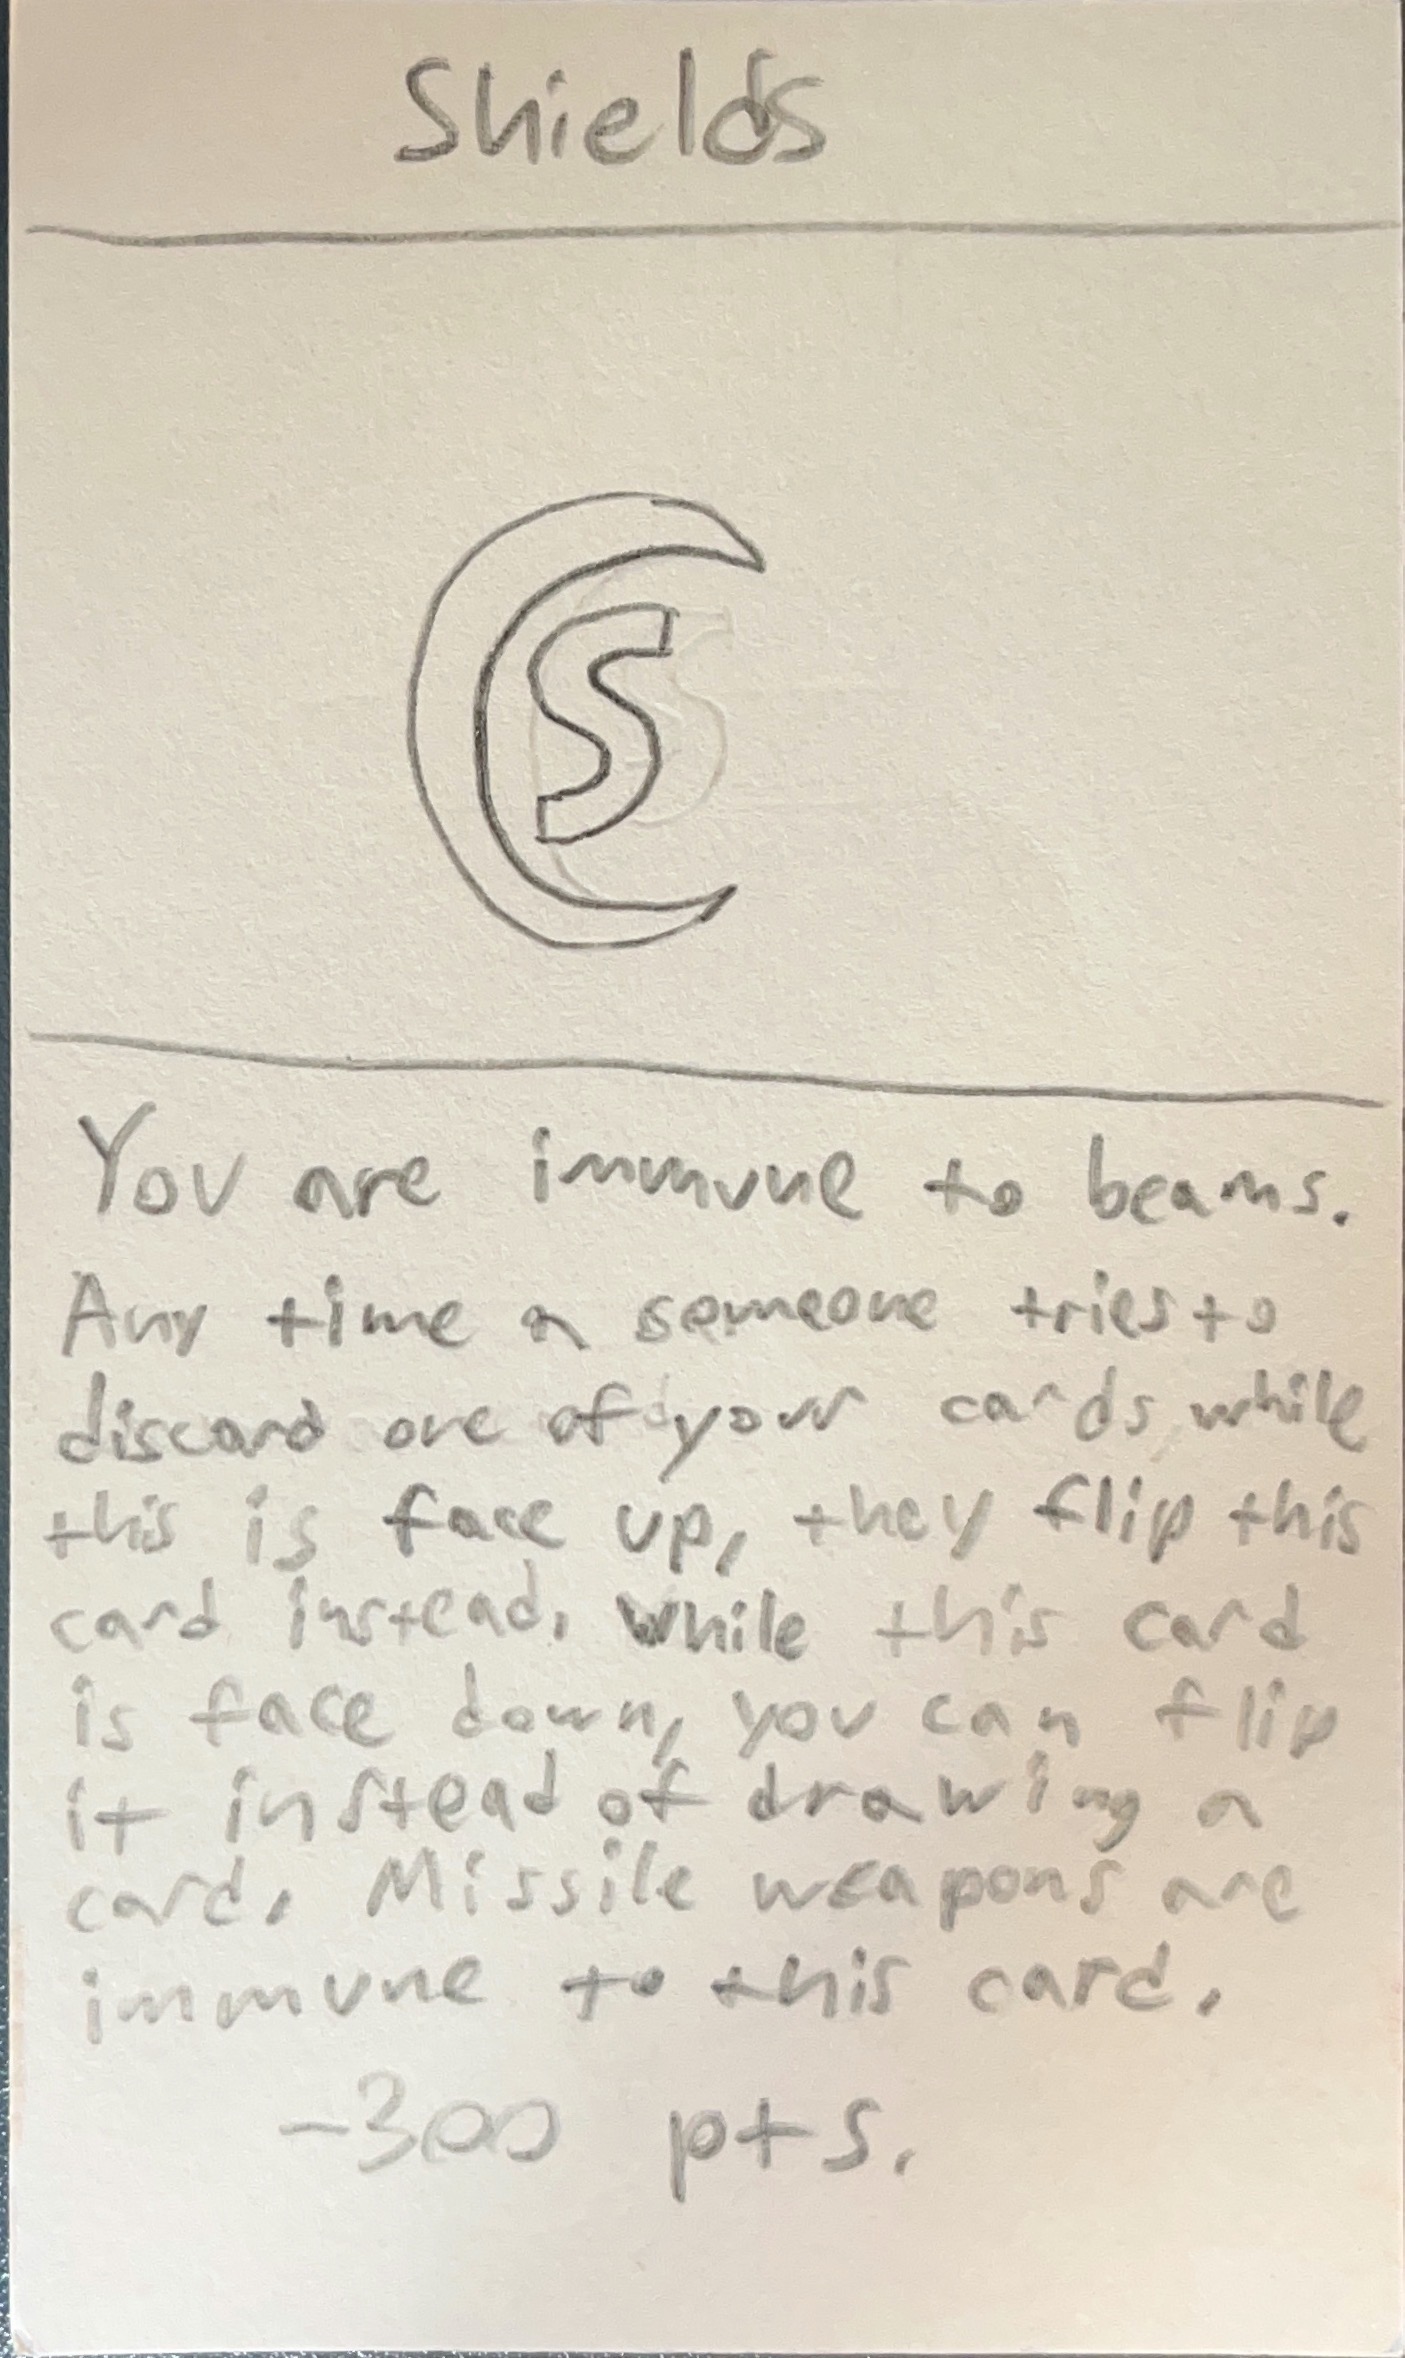 Shields
S
You are immune to beams.
Any time a someone tries to
discard one of your cards while
this is face up, they flip this
card instead. While this card
is face down, you can flip
it instead of drawing a
card. Missile weapons are
immune to this card.
-300 pts.